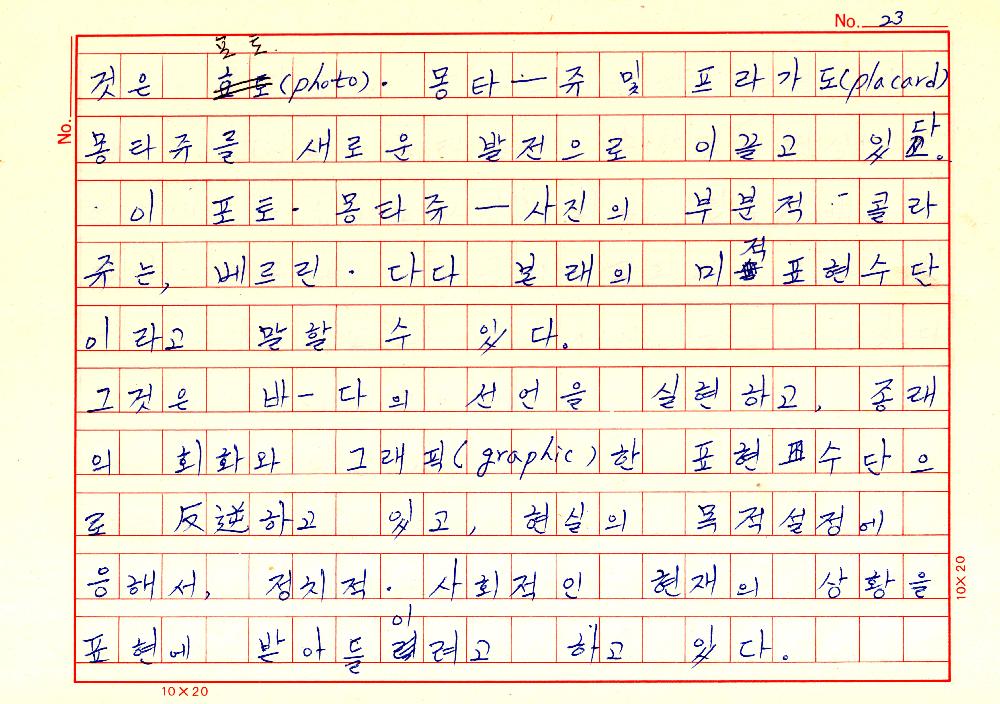 No. 23
포토
것은 (photo). 몽타ㅡ쥬 및 프라가도(placard)
No.
몽타쥬를 새로운 발전으로 이끌고 있다.
이 포토·몽타쥬ㅡ사진의 부분적 콜라
쥬는, 베르린·다다 본래의 미적 표현수단
이라고 말할 수 있다.
그것은 바ㅡ다의 선언을 실현하고, 종래
의 회화와 그래픽(graphic)한 표현수단으
로 反逆하고 있고, 현실의 목적설정에
응해서, 정치적·사회적인 현재의 상황을
표현에 받아들이려고 하고 있다.
10×20
10×20